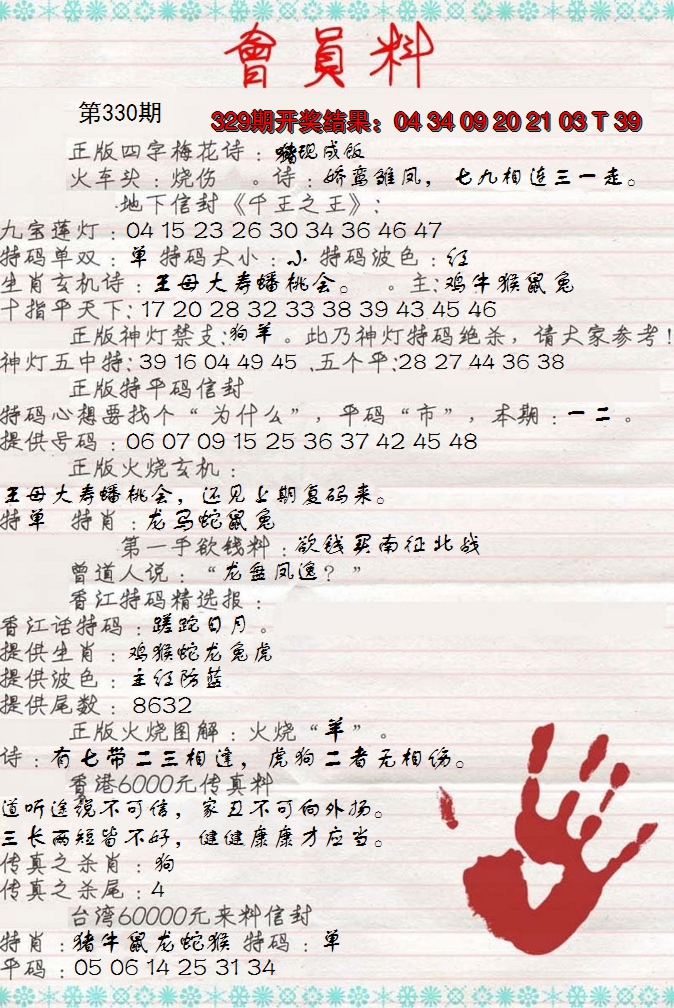 會員料
第330期
329期开奖结果：04 34 09 20 21 03 T 39
正版四字梅花诗：猪现成饭
火车头：烧伤 。诗：娇鸾雏凤，七九相连三一走。
地下信封《千王之王》：
九宝莲灯：04 15 23 26 30 34 36 46 47
特码单双：单 特码大小：小 特码波色：红
生肖玄机诗：王母大寿蟠桃会。 。主:鸡牛猴鼠兔
十指平天下:17 20 28 32 33 38 39 43 45 46
正版神灯禁支:狗羊。此乃神灯特码绝杀，请大家参考！
神灯五中特:39 16 04 49 45 .五个平:28 27 44 36 38
正版特平码信封
特码心想要找个“为什么”，平码“市”，本期：一二。
提供号码：06 07 09 15 25 36 37 42 45 48
正版火烧玄机：
王母大寿蟠桃会，还见上期复码来。
特单 特肖：龙马蛇鼠兔
第一手欲钱料：欲钱买南征北战
曾道人说：“龙盘凤逸？”
香江特码精选报：
香江话特码：蹉跎日月。
提供生肖：鸡猴蛇龙兔虎
提供波色：主红防蓝
提供尾数：8632
正版火烧图解：火烧“羊”。
诗：有七带二三相逢，虎狗二者无相伤。
香港6000元传真料
道听途说不可信，家丑不可向外扬。
三长两短皆不好，健健康康才应当。
传真之杀肖：狗
传真之杀尾：4
台湾60000元来料信封
特肖：猪牛鼠龙蛇猴 特码：单
平码：05 06 14 25 31 34